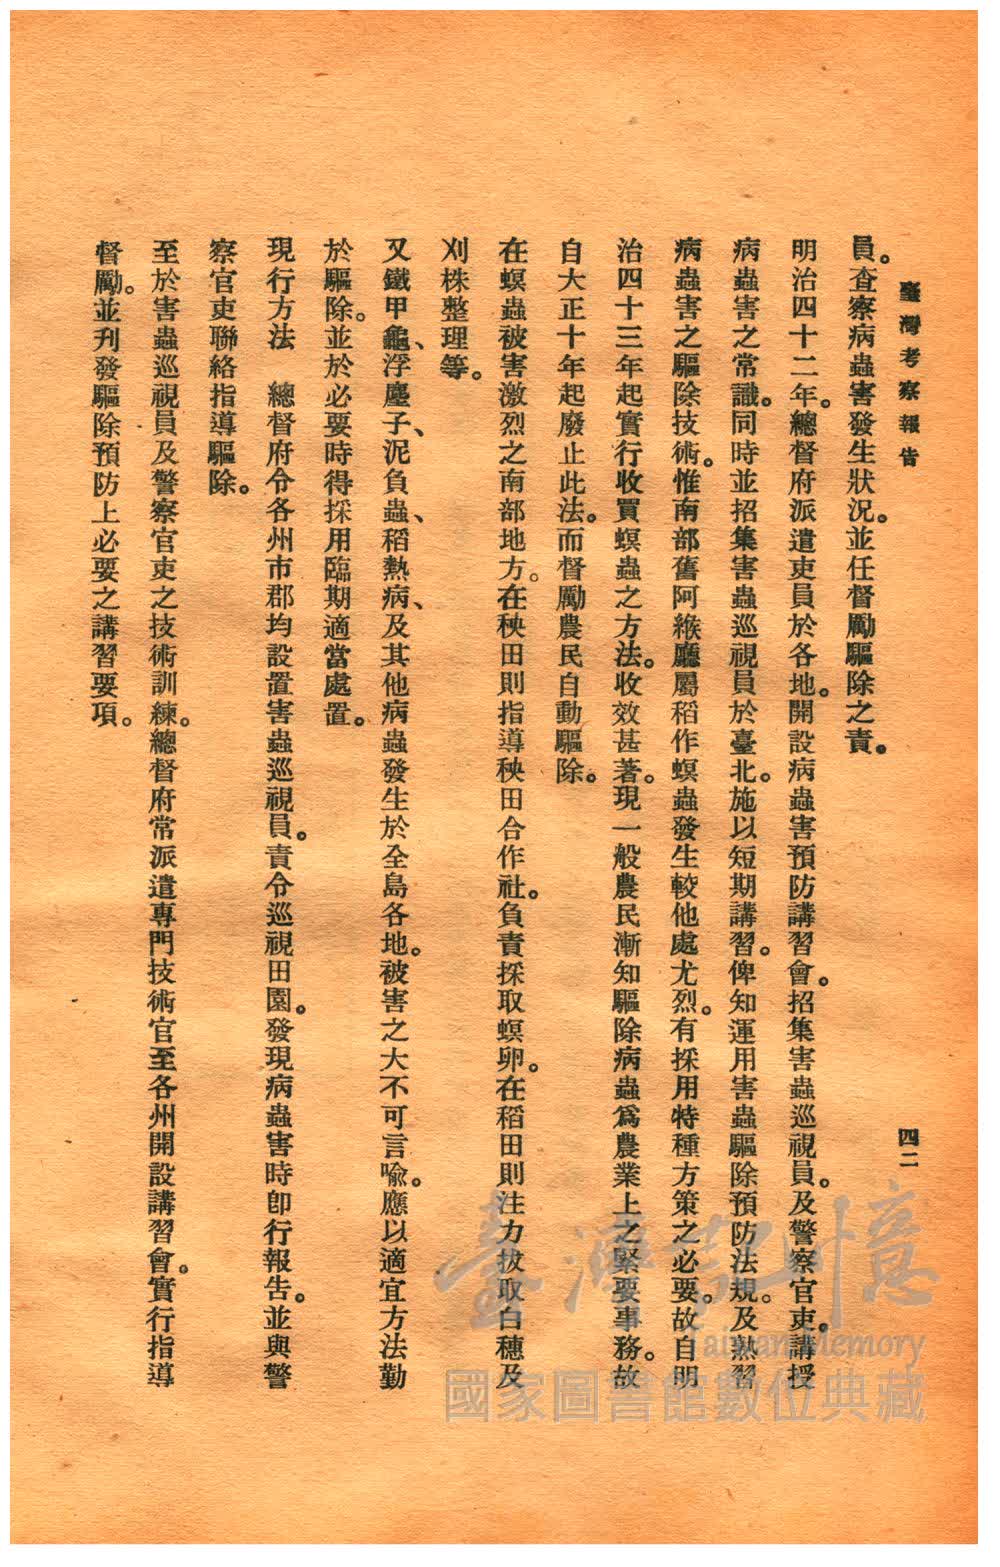 臺灣考察報告
四二
員。查察病蟲害發生狀況。並任督勵驅除之責。
明治四十二年。總督府派遣吏員於各地。開設病蟲害預防講習會。招集害蟲巡視員。及警察官吏。講授
病蟲害之常識。同時並招集害蟲巡視員於臺北。施以短期講習。俾知運用害蟲驅除預防法規。及熟習
病蟲害之驅除技術。惟南部舊阿緱廳屬稻作螟蟲發生較他處尤烈。有採用特種方策之必要。故自明
治四十三年起實行收買螟蟲之方法。收效甚著。現一般農民漸知驅除病蟲爲農業上之緊要事務。故
自大正十年起廢止此法。而督勵農民自動驅除。
在螟蟲被害激烈之南部地方。在秧田則指導秧田合作社。負責採取螟卵。在稻田則注力拔取白穗及
刈株整理等。
又鐵甲龜、浮塵子、泥負蟲、稻熱病、及其他病蟲發生於全島各地。被害之大不可言喩。應以適宜方法勤
於驅除。並於必要時得採用臨期適當處置。
現行方法　總督府令各州市郡均設置害蟲巡視員。責令巡視田園。發現病蟲害時卽行報告。並與警
察官吏聯絡指導驅除。
至於害蟲巡視員及警察官吏之技術訓練。總督府常派遣專門技術官至各州開設講習會。實行指導
督勵。並刋發驅除預防上必要之講習要項。
臺灣記憶
Taiwan Memory
國家圖書館數位典藏